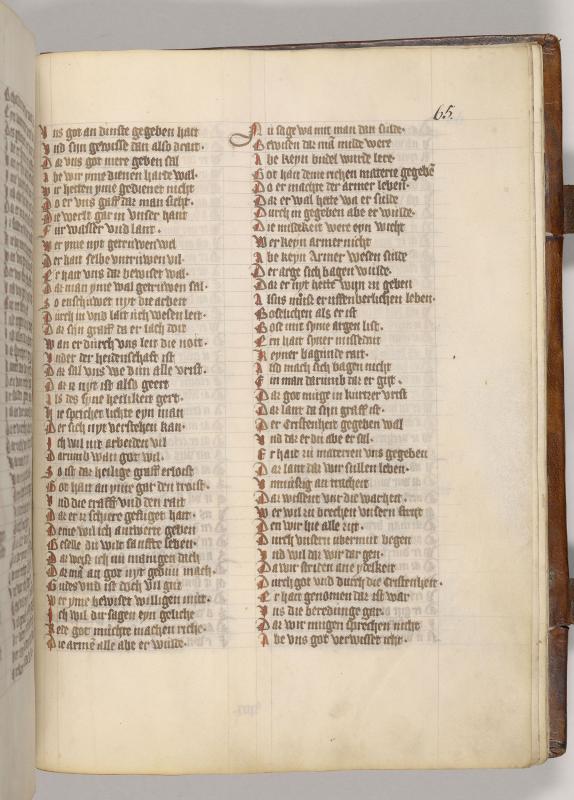 65
Vns got an dinste gegeben hait
Vnd syn gewisse dan also drait
Daz vns got mere geben sal
Abe wir yme dienen harte wal
Wir hetten yme gedienet nicht
Do er vns gaff daz man sicht
Die werlt gar in vnser hant
Fur wasser vnd lant
Wer yme nyt getruwen wil
Der hait selbe vntruwen vil
Er hait vns daz bewiset wal
Daz man yme wal getruwen sal
So enschuwet nyt die arbeit
Durch in vnd lait uch wesen leit
Daz syn graff da er tach doit
Wan er durch vns leit die noit
Vnder der heidenschafft ist
Daz sal vns we dun alle vrist
Daz iz nyt ist also geert
Als des syne heilikeit gert
Hie sprichet lichte eyn man
Der sich nyt verstehen kan
Ich wil nit arbeiden vil
Darumb wan got wil
So ist daz heilige graff erloist
Got hait an yme gar den troist
Vnd die crafft vnd den rait
Daz er iz schiere gefuget hait
Deme wil ich antworte geben
Geselle du wilt sanffte leben
Daz weiß ich nu manigen dich
Daz man an got nyt gewin mach
Gudes vnd ist doch vil gut
Wer yme bewiset willigen mut
Ich wil dir sagen eyn geliche
Rede got muchte machen riche
Die armen alle abe er wulde
Nu sage wa mit man dan sulde
Bewisen daz man milde were
Abe keyn budel wurde lere
Got hait deme richen materie gegeben
Do er machte der armer leben
Daz er wal hette wa er sulde
Durch in gegeben abe er wulde
Die mildekeit were eyn wicht
Wer keyn armer nicht
Abe keyn Armer wesen sulde
Der arge sich hagen wulde
Daz er nyt hette wijn zu geben
Alsus muß er uffenberlichen leben
Boßlichen als er ist
Got mit syme argen list
En hait syner missedait
Keyner bagunde rait
Also mach sich bagen nicht
Ein man darumb daz er gijt
Daz got muge in kurtzer vrist
Daz lant da syn graff ist
Der Cristenheit gegeben wal
Vnd daz er du abe er sal
Er hait zu materien vns gegeben
Daz lant daz wir sullen leben
Vnmussig an trucheit
Daz wissent vur die warheit
Wer wil zu brechen vnsern strijt
Den wir hie alle zijt
Durch vnsern vbermut begen
Vnd wil daz wir dar gen
Da wir striten ane ydelkeit
Durch got vnd durch die Cristenheit
Er hait genomen daz ist war
Vns die beredunge gar
Daz wir mugen sprechen nicht
Abe vns got verwisset icht